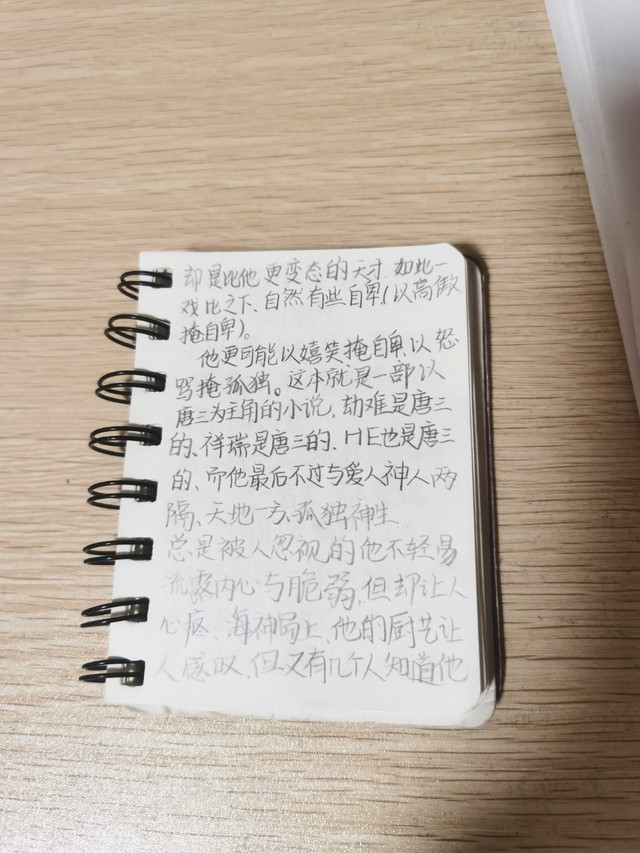 却是比他更变态的天才.如此一
戏比之下、自然有些自卑(以高傲
掩自卑)。
他更可能以嬉笑掩自卑、以怒
骂掩孤独。这本就是一部以
唐三为主角的小说,劫难是唐三
的、祥瑞是唐三的、HE也是唐三
的、而他最后不过与爱人神人两
隔、天地一方、孤独神生
总是被人忽视的他不轻易
流露内心与脆弱,但却让人
心疼、海神岛上、他的厨艺让
人感叹、但又有几个人知道他